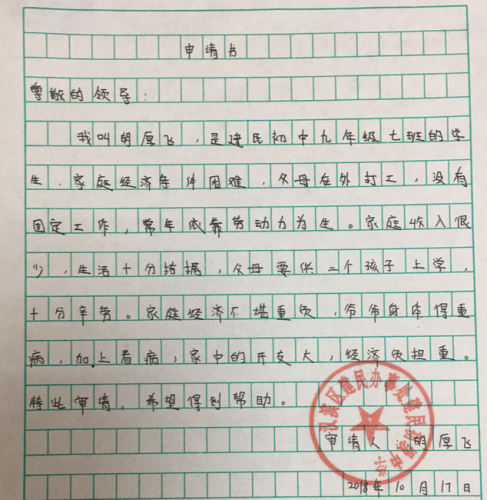 申请书
尊敬的领导：
我叫胡厚飞，是建民初中九年级七班的学
生．家庭经济条件困难，父母在外打工，没有
固定工作，常年依靠劳动力为生。家庭收入很
少，生活十分拮据，父母要供二个孩子上学，
十分辛劳。家庭经济不堪重负，爷爷身体得重
病，加上看病，家中的开支大，经济负担重。
特此申请，希望得到帮助。
申请人：胡厚飞
2018年10月17日
汉滨区建民办事处建民初级中学